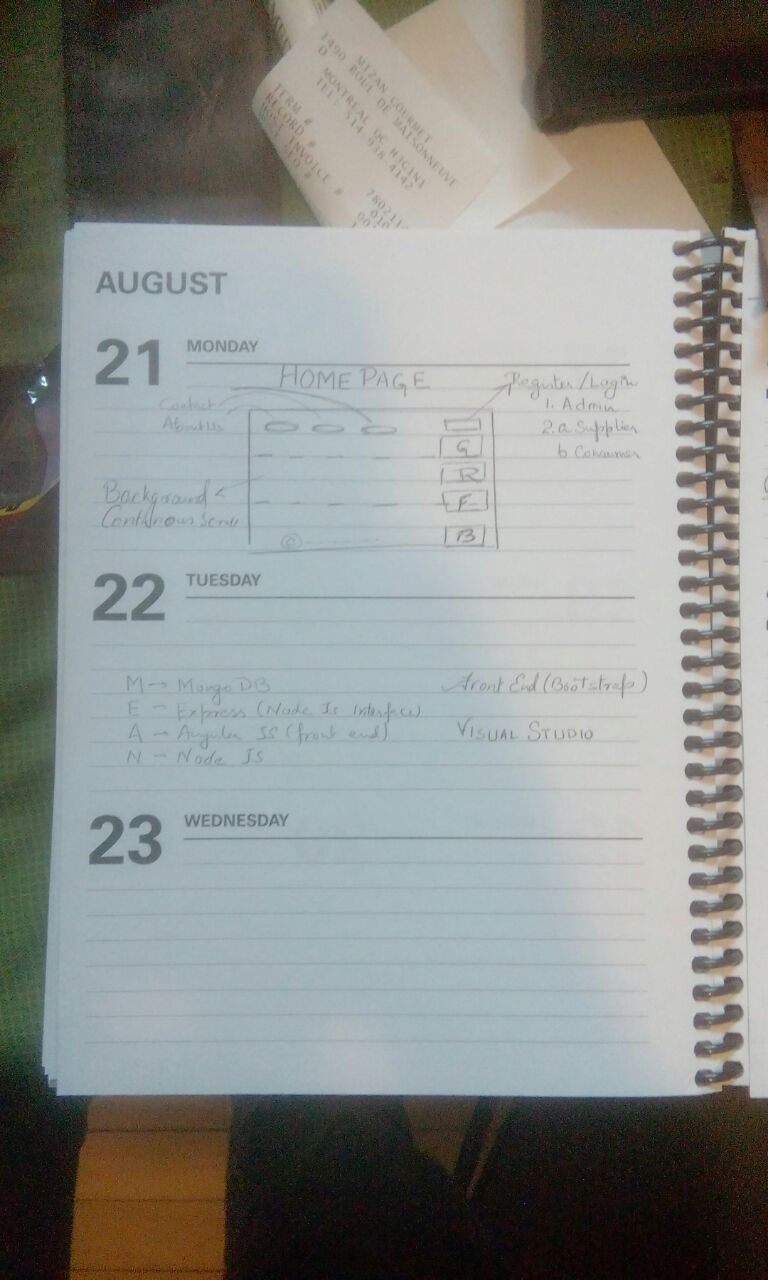 MIZAN GOURMET
1490 BOUL DE MAISONNEUVE
O
MONTREAL QC H3G1N1
TEL: 514-938-4142
TERM #
RECORD #
INVOICE #
AUGUST
21 MONDAY
HOME PAGE
Register/Login
1. Admin
2. a Supplier
b Consumer
Contact
About Us
G
R
F
B
Background
Continous Scroll
22 TUESDAY
M → Mongo DB
E - Express (Node Js Interface)
A → Angular JS (front end)
N - Node JS
Front End (Bootstrap)
VISUAL STUDIO
23 WEDNESDAY